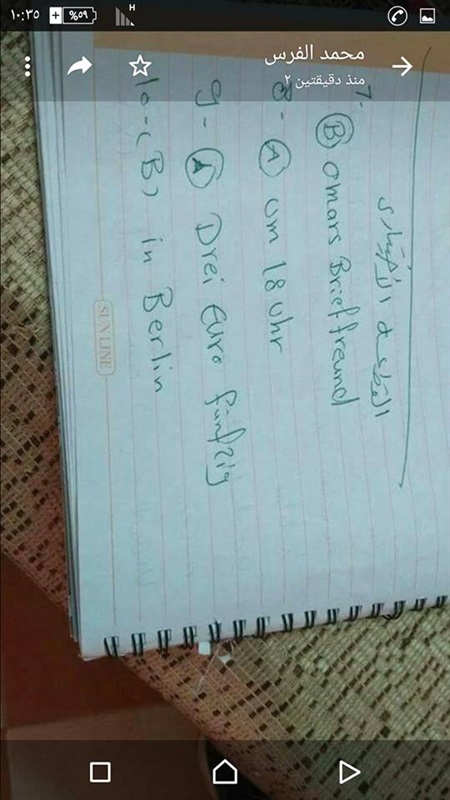 ١٠:٣٥ %٥٩ H
محمد الفرس
منذ دقيقتين ٢
القطعة الأختيارى
7-
(B) omars Brieffreund
8- (A) um 18 Uhr
9- (A) Drei Euro fünfzig
10-(B) in Berlin
SUN LINE